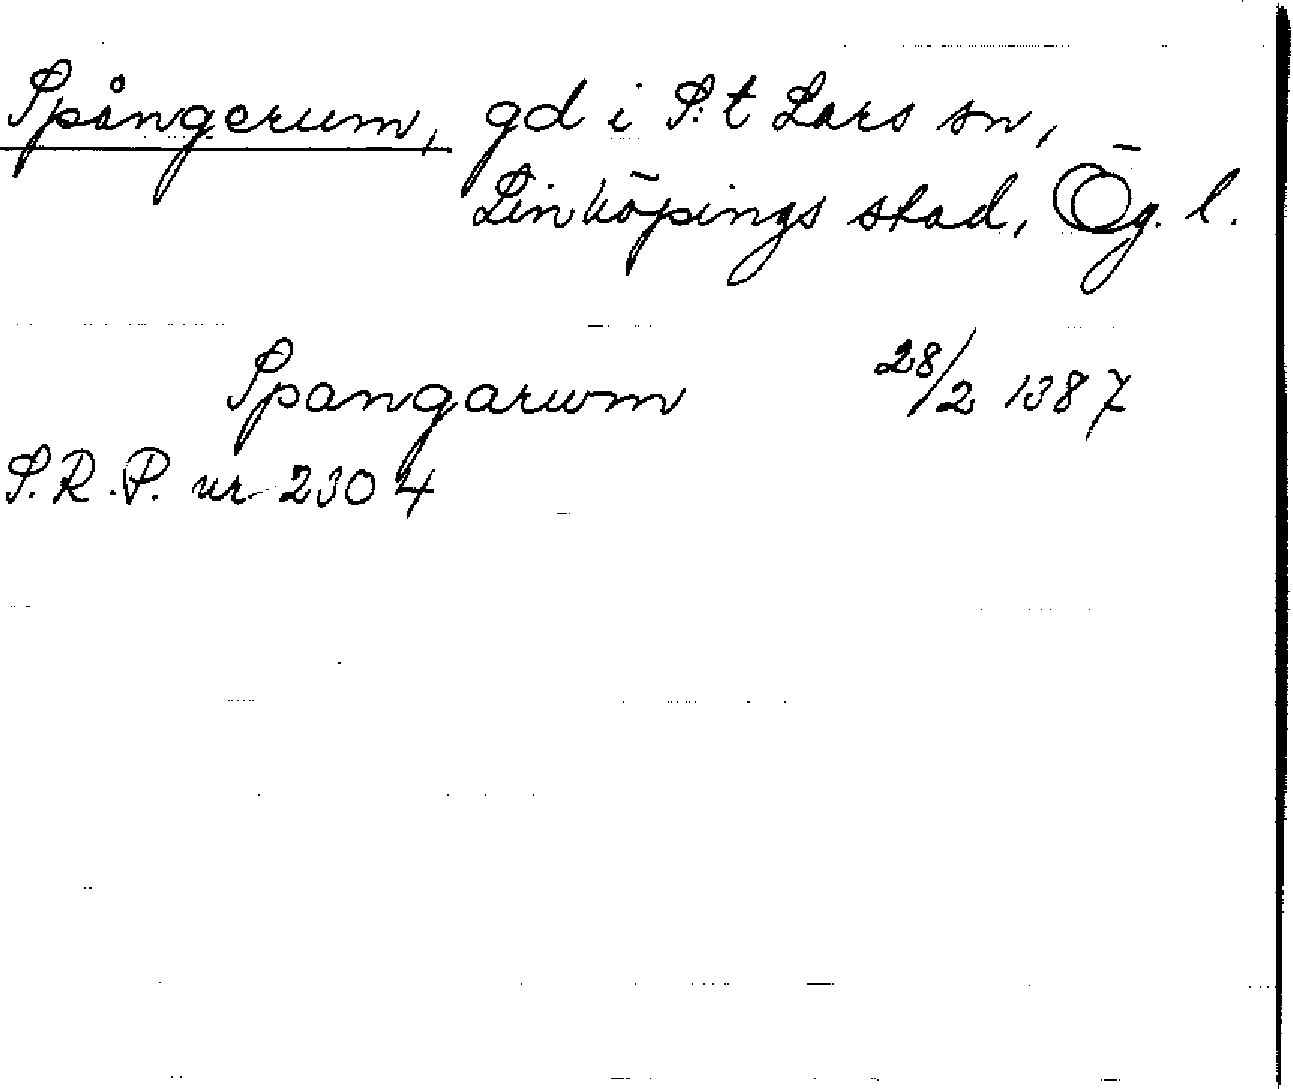 Spångerum, gd i S:t Lars sn,
Linköpings stad, Ög. l.
Spangarum 28/2 1387
S.R.P. nr 2304